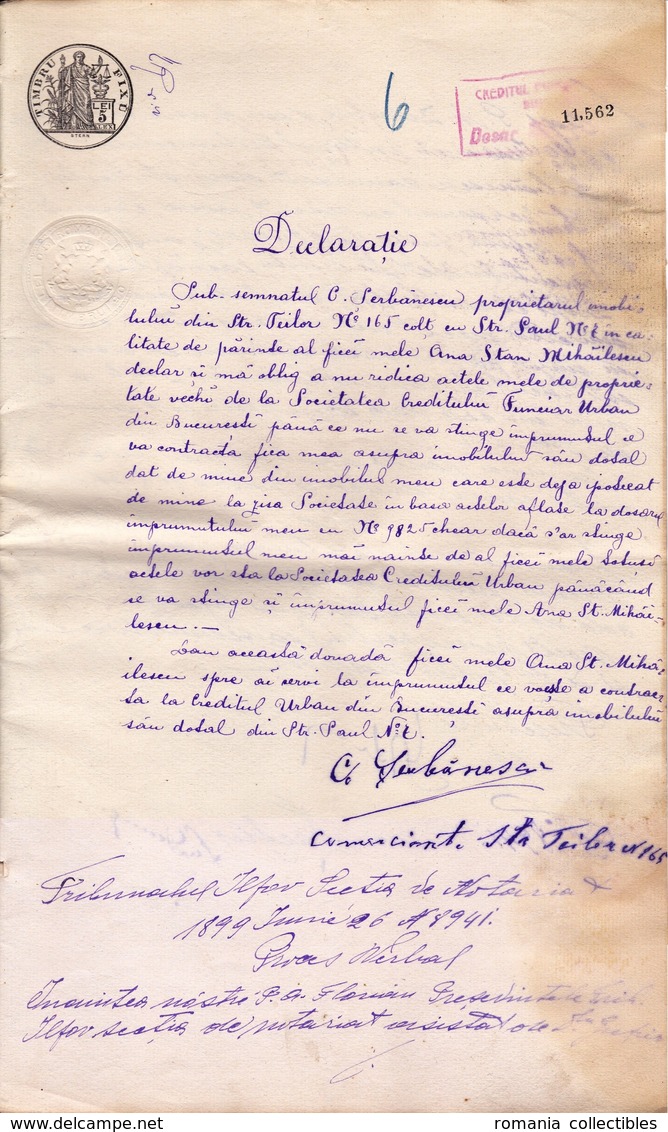 TIMBRU FIXU
LEI
5
STERN
6
CREDITUL
Dosar
11,562
Declarație
Sub-semnatul C. Șerbănescu proprietarul imobi-
lului din Str. Teilor Nº 165 colt cu Str. Paul Nº in ca-
litate de părinte al ficei mele Ana Stan Mihăilescu
declar și mă oblig a nu ridica actele mele de proprie-
tate vechi de la Societatea Creditului Funciar Urban
din Bucuresti până ce nu se va stinge imprumutul ce
va contracta fica mea asupra imobilului său dotal
dat de mine din imobilul meu care este deja ipotecat
de mine la zisa Societate in baza actelor aflate la dosarul
imprumutului meu cu Nº 9825 chear dacă s'ar stinge
imprumutul meu mai nainte de al ficei mele totuși
actele vor sta la Societatea Creditului Urban pănăcând
se va stinge și imprumutul ficei mele Ana St. Mihăi-
lescu. —
Dau această dovadă ficei mele Ana St. Mihă-
ilescu spre ai servi la imprumutul ce a contrac-
ta la Creditul Urban din Bucuresti asupra imobilului
său dotal din Str. Paul Nº
C. Șerbănescu
comerciant Str Teilor N 165
Tribunalul Ilfov Sectia de Notariat
1899 Iunie 26 N 8941.
Proces Verbal
Inaintea nóstră P. A. Florian Președintele Trib.
Ilfov secția de notariat asistat de
romania collectibles